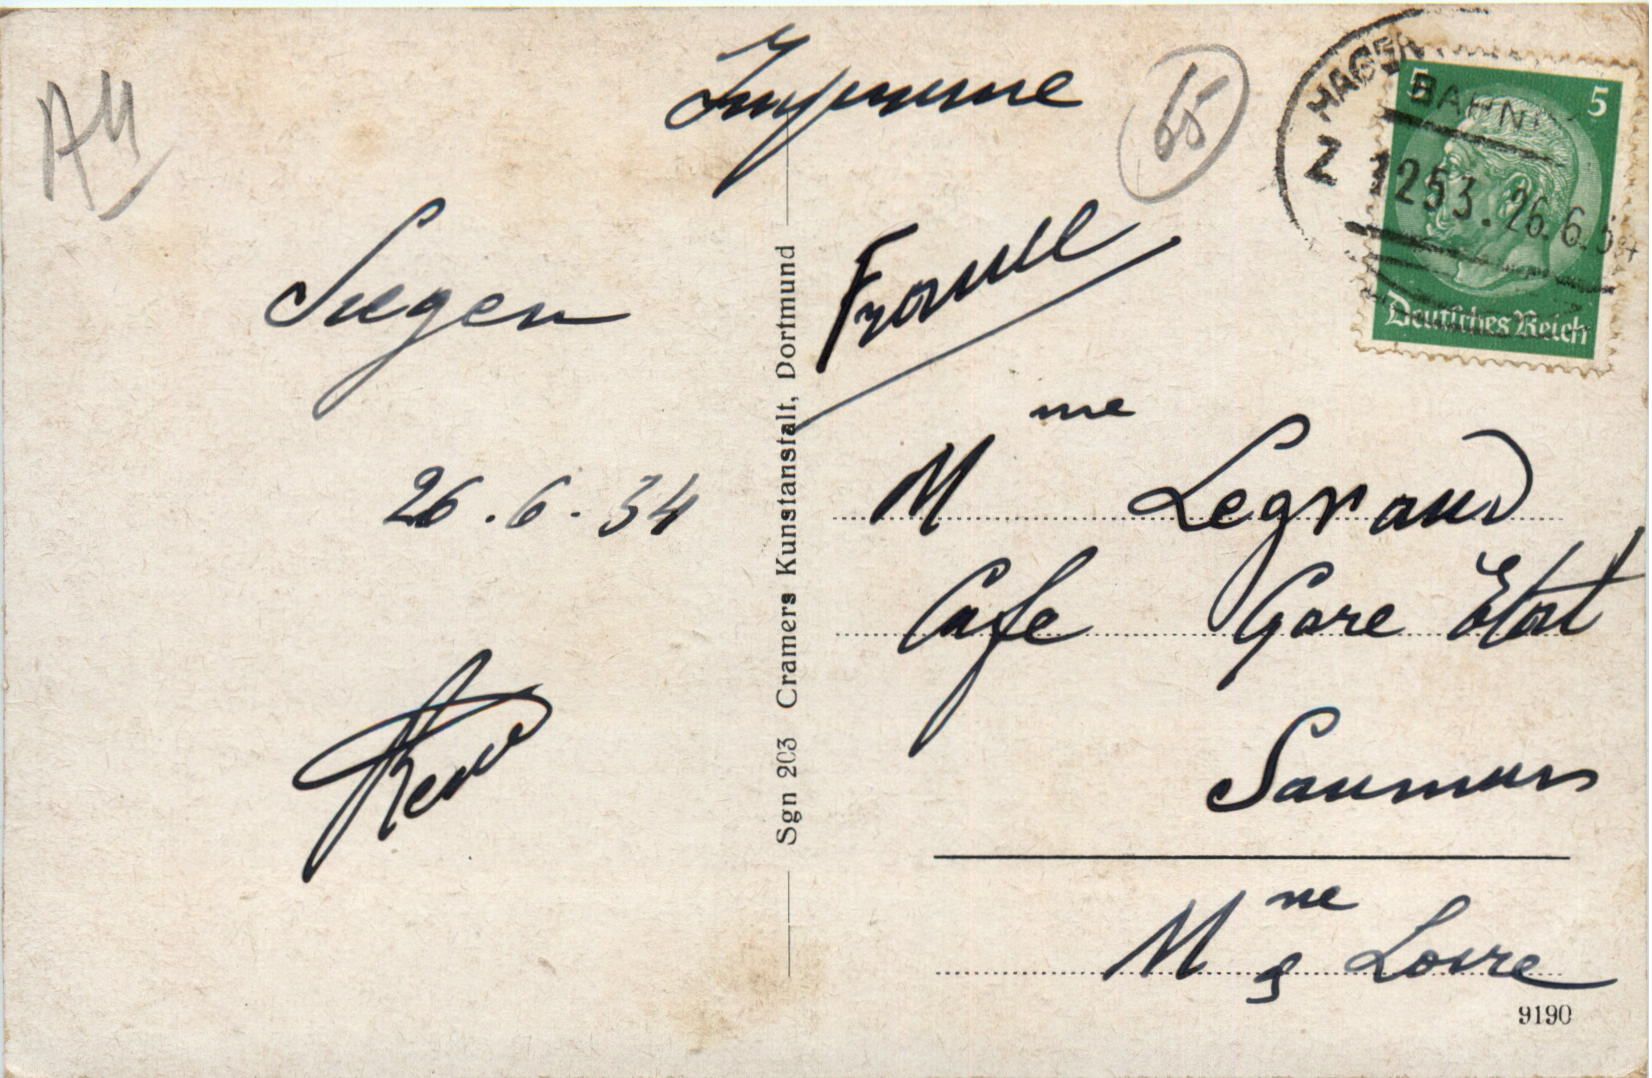 Imprimé
65
A4
HAGEN
BAHNP
Z 1253. 26.6.34
5
5
Deutsches Reich
France
Siegen
26.6.34
Mme Legrand
Café Gare Etat
Saumur
Mne & Loire
Sgn 203 Cramers Kunstanstalt, Dortmund
9190